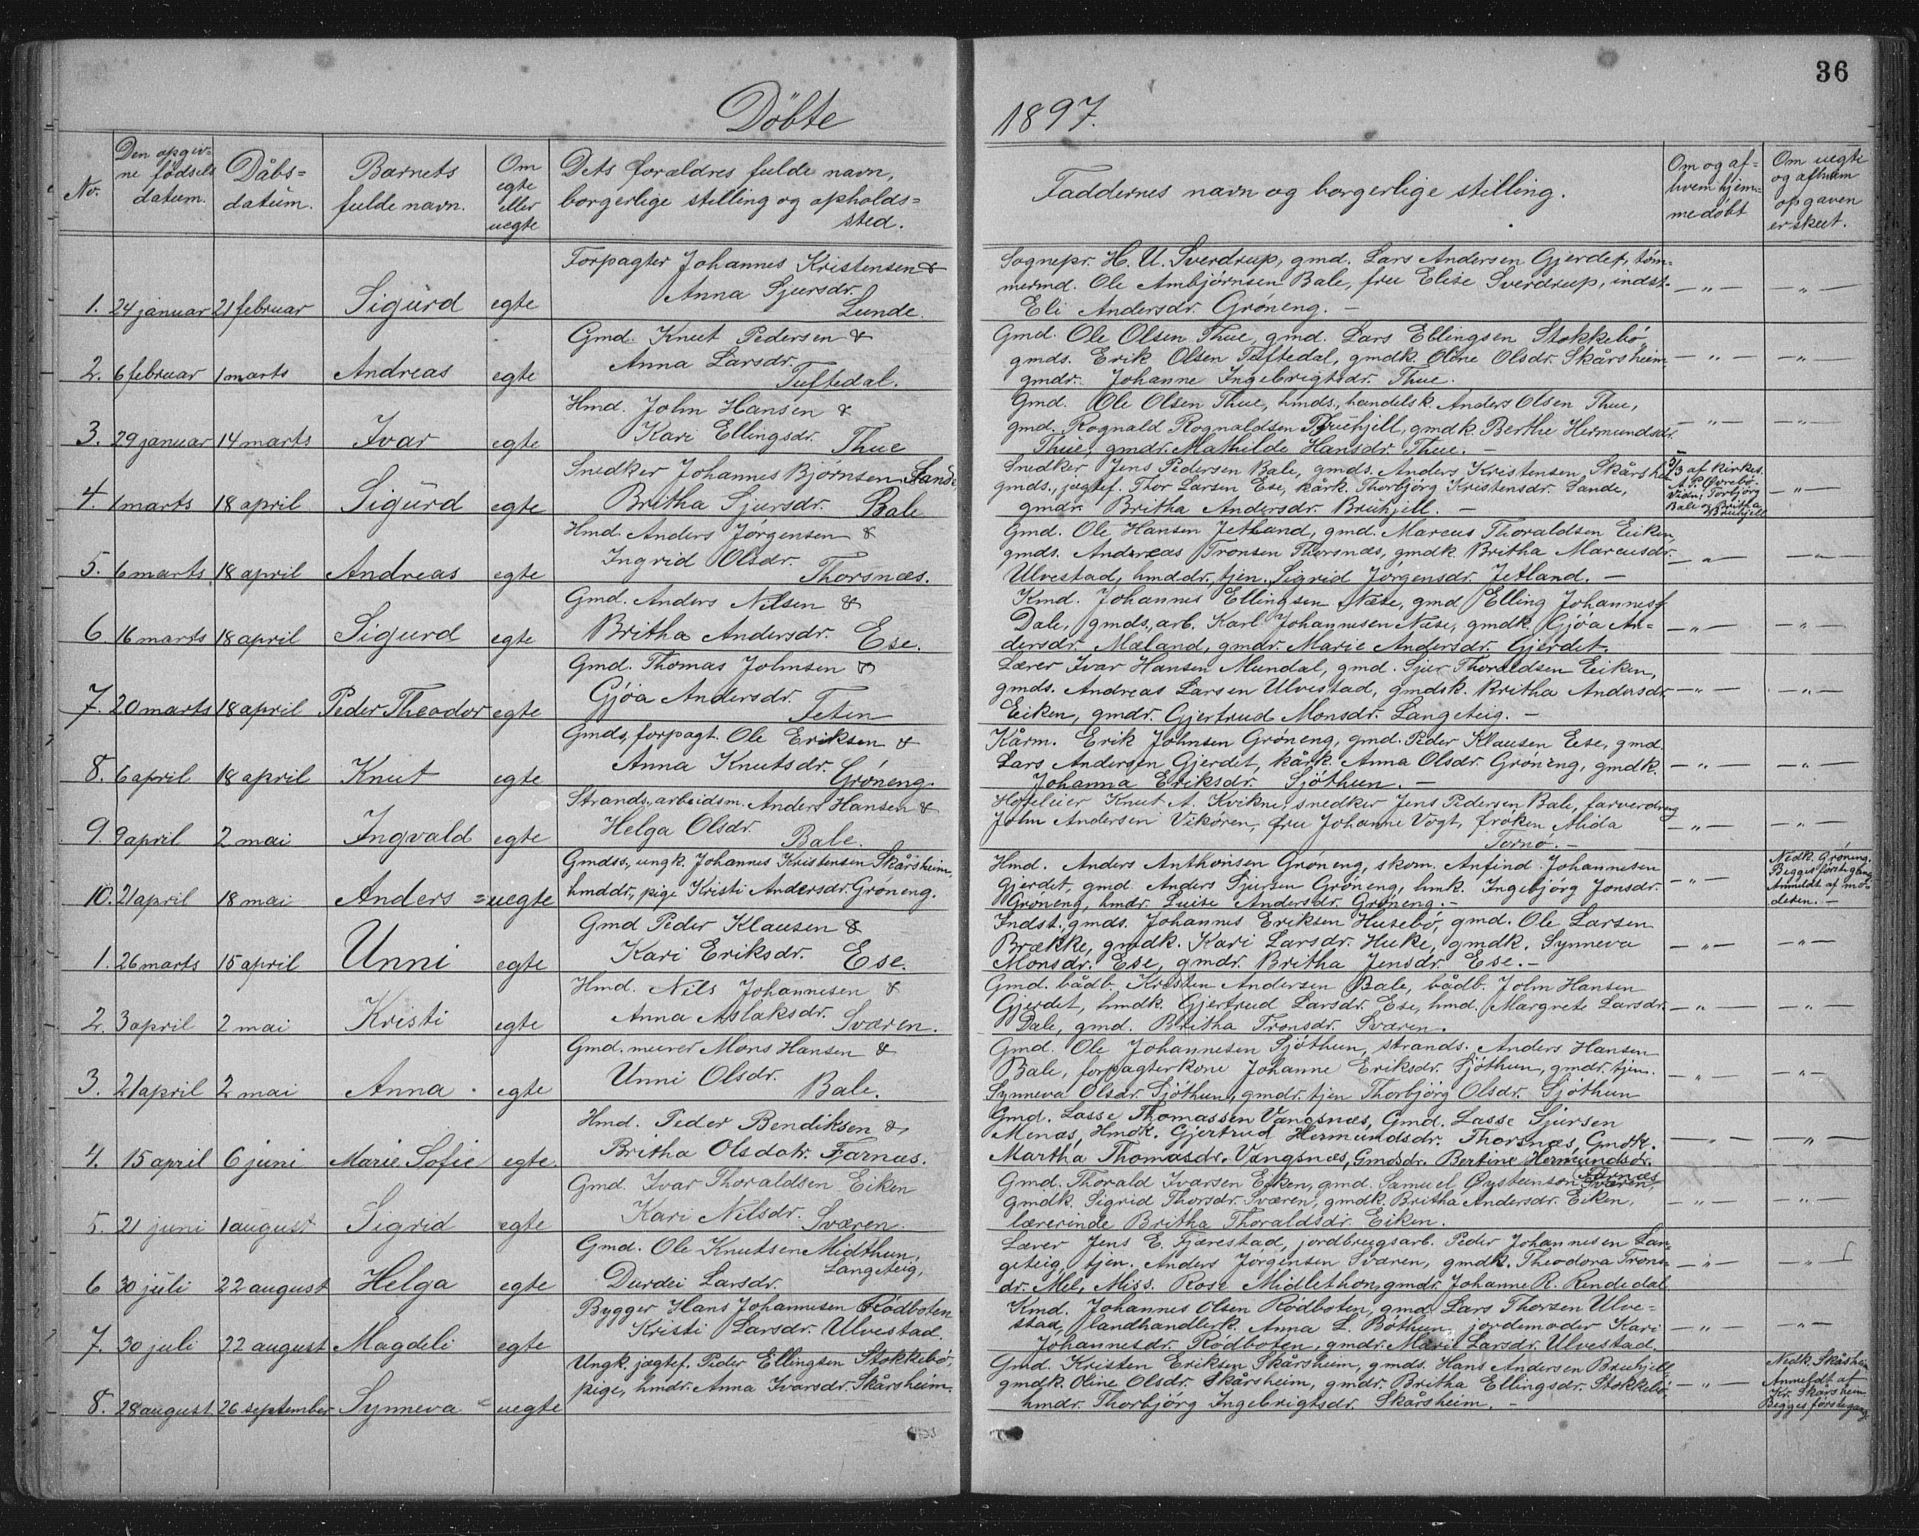 36
Döbte
1897.
No.
Den opgiv-
ne födsels
datum.
Dåbs-
datum.
Barnets
fulde navn.
Om
egte
eller
uegte
Dets forældres fulde navn,
borgerlige stilling og opholds-
sted.
Faddernes navn og borgerlige stilling.
Om og af
hvem hjem-
medöbt
Om uegte
og afhvem
opgaven
er skeet.
1. 24 januar 21 februar Sigurd egte
Forpagter Johannes Kristensen &
Anna Sjursdr.
Lunde.
Sognepr. H. U. Sverdrup, gmd. Lars Andersen Gjerdet, töm-
mermd. Ole Ambjørnsen Bale, fru Elise Sverdrup, indst.
Eli Andersdr. Gröneng. -
2. 6 februar 1 marts Andreas egte
Gmd. Knut Pedersen &
Anna Larsdr.
Tuftedal.
Gmd. Ole Olsen Thue, gmd. Lars Ellingsen Stokkebö,
gmds. Erik Olsen Tuftedal, gmdk. Oline Olsdr. Skårsheim,
gmdr. Johanne Ingebrigtsdr. Thue.
3. 29 januar 14 marts Ivar egte
Hmd. John Hansen &
Kari Ellingsdr.
Thue
Gmd. Ole Olsen Thue, hmds, handelsk. Anders Olsen Thue,
gmd. Rognald Rognaldsen Bruhjell, gmdk. Berthe Hermundsdr.
Thue, gmdr. Mathilde Hansdr. Thue. -
4. 1 marts 18 april Sigurd egte
Snedker Johannes Bjørnsen Sande,
Britha Sjursdr. Bale
Snedker Jens Pedersen Bale, gmds. Anders Kristensen Skårsheim
gmds., jægtef. Thor Larsen Ese, kårk. Thorbjörg Kristensdr. Sande,
gmdr. Britha Andersdr. Bruhjell. -
5/3 af kirkes.
A. P. Øvrebö.
Vidn: Torbjörg
Bale og Britha
Bruhjell
5. 6 marts 18 april Andreas egte
Hmd. Anders Jörgensen &
Ingrid Olsdr.
Thorsnæs.
Gmd. Ole Hansen Jetland, gmd. Marcus Thoraldsen Eiken,
gmds. Andreas Tronsen Thorsnæs, gmdk. Britha Marcusdr.
Ulvestad, hmddr. tjen. Sigrid Jörgensdr. Jetland. -
6 16 marts 18 april Sigurd egte
Gmd. Anders Nilsen &
Britha Andersdr. Ese.
Kmd. Johannes Ellingsen Næse, gmd Elling Johannesf.
Dale, gmds, arb. Karl Johannesen Næse, gmdk. Gjöa An-
dersdr. Mæland, gmdr. Marie Andersdr. Gjerdet.
7. 20 marts 18 april Peder Theodor egte
Gmd. Thomas Johnsen &
Gjöa Andersdr.
Feten
Lærer Ivar Hansen Mundal, gmd. Sjur Thoraldsen Eiken,
gmds. Andreas Larsen Ulvestad, gmdsk. Britha Andersdr
Eiken, gmdr. Gjertrud Monsdr. Langeteig. -
8. 6 april 18 april Knut egte
Gmds, forpagt. Ole Eriksen &
Anna Knutsdr.
Gröneng
Kårm. Erik Johnsen Gröneng, gmd. Peder Klausen Ese, gmd.
Lars Andersen Gjerdet, kårk. Anna Olsdr. Gröneng, gmdk.
Johanna Eriksdr. Sjöthun. -
9. 9 april 2 mai Ingvald egte
Strands. arbeidsm. Anders Hansen &
Helga Olsdr.
Bale.
Hoteleier Knut A. Kvikne, snedker Jens Pedersen Bale, farverdreng
John Andersen Vikören, fru Johanne Vogt, fröken Alida
Tornö. -
10. 21 april 18 mai Anders uegte
Gmdss, ungk. Johannes Kristensen Skårsheim,
hmddr, pige Kristi Andersdr. Gröneng.
Hmd. Anders Anthonsen Gröneng, skom. Anfind Johannesen
Gjerdet, gmd. Anders Sjursen Gröneng, hmk. Ingebjörg Jonsdr.
Gröneng, hmdr. Luise Andersdr. Gröneng. -
Nedk. Gröneng.
Begges förstegang
Anmeldt af mo-
deren. -
1. 26 marts 15 april Unni egte
Gmd Peder Klausen &
Kari Eriksdr. Ese.
Indst. gmds. Johannes Eriksen Husebö, gmd. Ole Larsen
Brække, gmdk. Kari Larsdr. Huke, gmdk. Synneva
Monsdr. Ese, gmdr. Britha Jensdr. Ese. -
2. 3 april 2 mai Kristi egte
Hmd. Nils Johannesen &
Anna Aslaksdr. Sværen.
Gmd. bådb. Kristen Andersen Bale, bådb. John Hansen
Gjerdet, hmdk. Gjertrud Larsdr. Ese, hmd. Margrete Larsdr.
Dale, gmd. Britha Tronsdr. Sværen.
3. 21 april 2 mai Anna egte
Gmd. murer Mons Hansen &
Unni Olsdr.
Bale.
Gmd. Ole Johannesen Sjöthun, strands. Anders Hansen
Bale, forpagterkone Johanne Eriksdr. Sjöthun, gmdr. tjen.
Synneva Olsdr. Sjöthun, gmdr. tjen Thorbjörg Olsdr. Sjöthun
4. 15 april 6 juni Marie Sofie egte.
Hmd. Peder Bendiksen &
Britha Olsdatr. Farnæs.
Gmd. Lasse Thomassen Vangsnæs, Gmd. Lasse Sjursen
Menæs, Hmdk. Gjertrud Hermundsdr. Thorsnæs, Gmdk.
Martha Thomasdr. Vangsnæs, Gmdsdr. Bertine Hermundsdr.
5. 21 juni 1 august Sigrid egte
Gmd. Ivar Thoraldsen Eiken
Kari Nilsdr. Sværen.
Gmd. Thorald Ivarsen Eiken, gmd. Samuel Øystensön Sværen,
gmdk. Sigrid Thorsdr. Sværen, gmdk. Britha Andersdr. Eiken,
lærerinde Britha Thoraldsdr. Eiken.
6 30 juli 22 august Helga egte
Gmd. Ole Knutsen Midthun,
Langeteig,
Durdei Larsdr.
Lærer Jens E. Fjærestad, jordbrugsarb. Peder Johannesen Lan-
geteig tjen. Anders Jörgensen Sværen, gmdk. Theodora Trons-
dr. Mel, Miss. Rose Middlethon, gmdr. Johanne R. Rendedal
7. 30 juli 22 august Magdeli egte
Bygger Hans Johannesen Rödboten
Kristi Larsdr. Ulvestad.
Kmd. Johannes Olsen Rödboten, gmd. Lars Thorsen Ulve-
stad, landhandlerk. Anna L. Böthun, jordemoder Kari
Johannesdr. Rödboten, gmdr. Mari Larsdr. Ulvestad.
8. 28 august 26 september Synneva uegte
Ungk. jægtef. Peder Ellingsen Stokkebö,
pige, hmdr. Anna Ivarsdr. Skårsheim.
Gmd. Kristen Eriksen Skårsheim, gmds. Hans Andersen Bruhjell,
gmdk. Oline Olsdr. Skårsheim, gmdr. Britha Ellingsdr. Stokkebö
hmdr. Thorbjörg Ingebrigtsdr. Skårsheim. -
Nedk. Skårsheim
Anmeldt af
Kr. Skårsheim
Begges förstegang